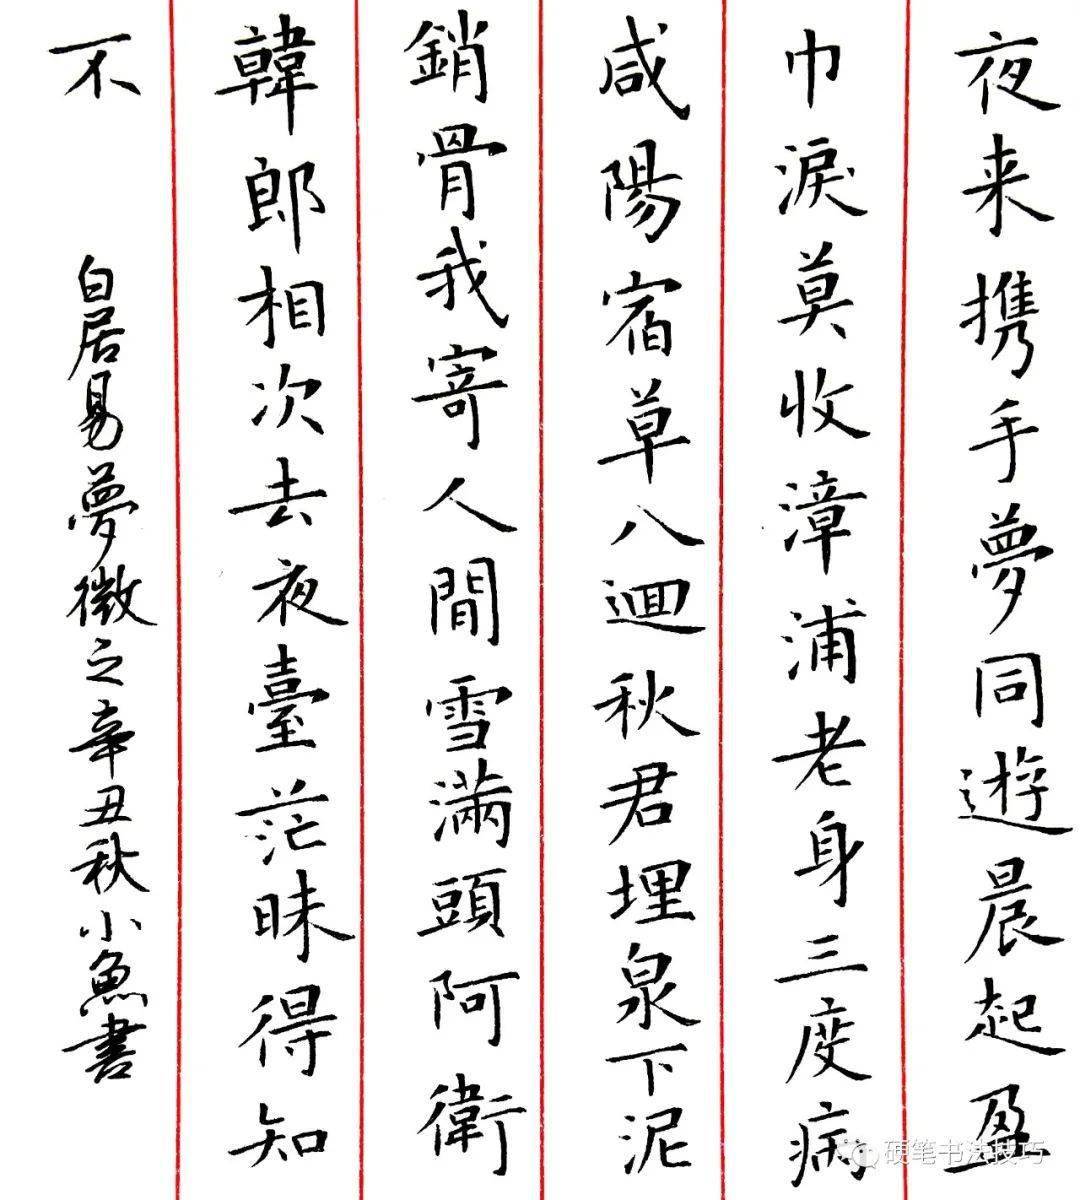 夜来携手夢同遊晨起盈
巾淚莫收漳浦老身三度病
咸陽宿草八迴秋君埋泉下泥
銷骨我寄人間雪滿頭阿衛
韓郎相次去夜臺茫昧得知
不 白居易夢微之辛丑秋小魚書
硬笔书法技巧